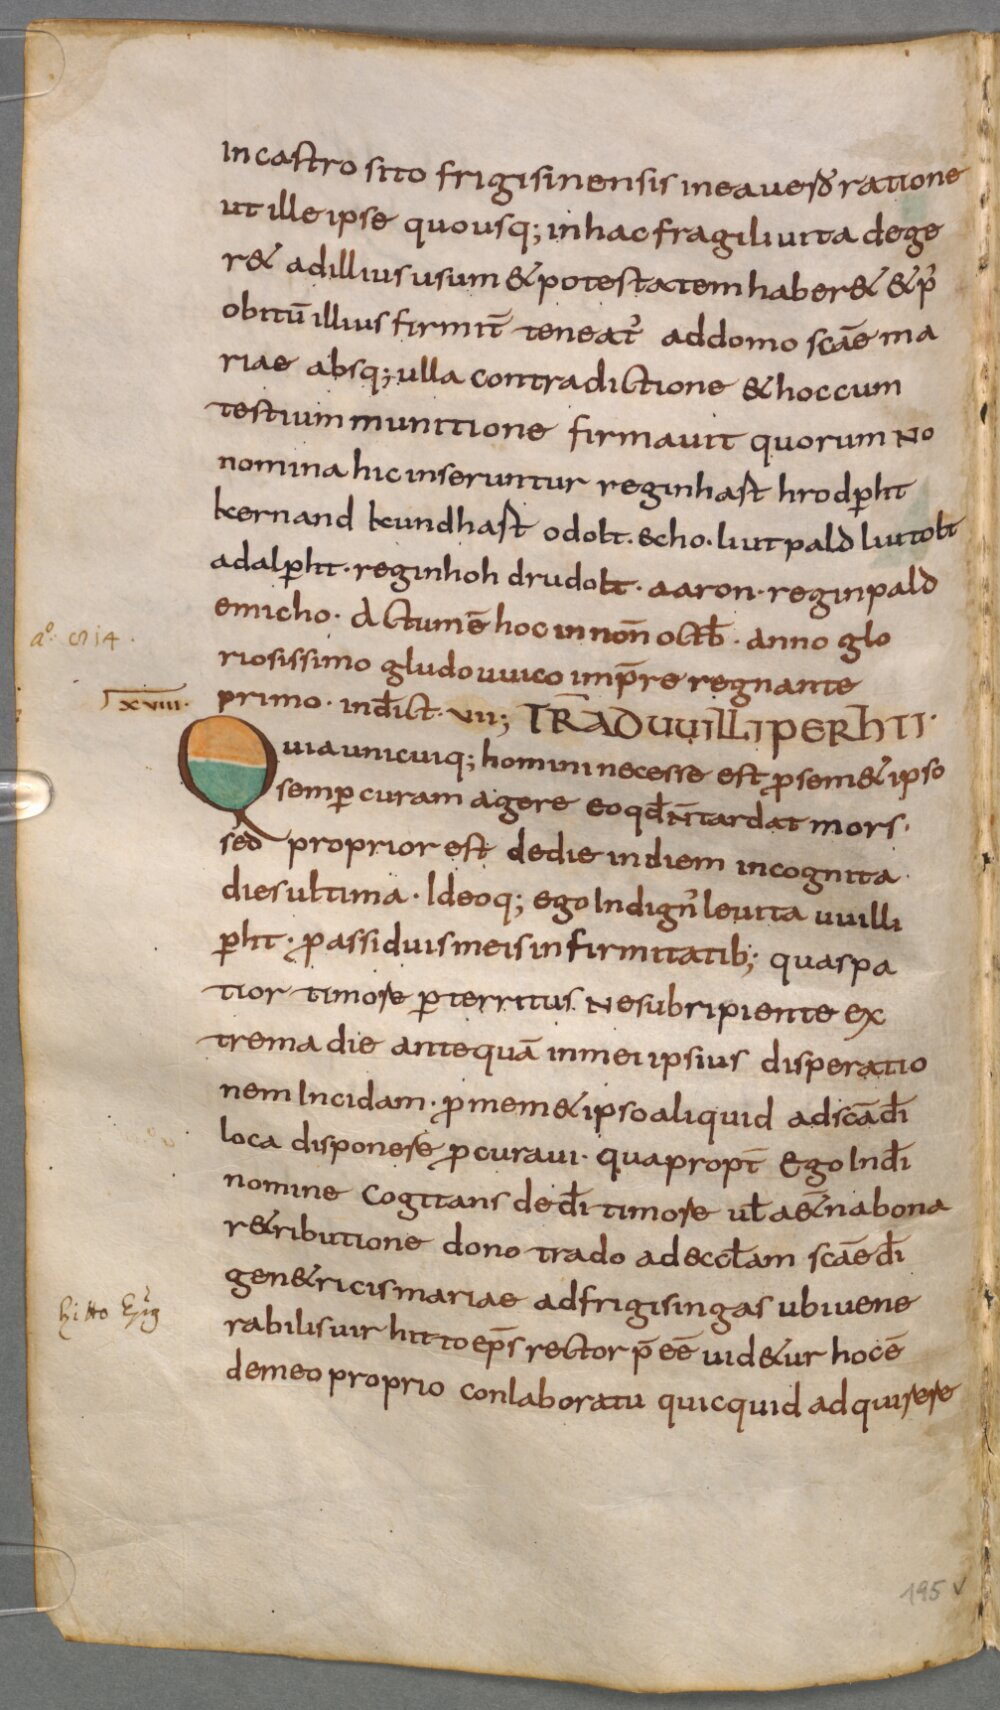 In castro sito frigisinensis in ea uero ratione
ut ille ipse quousq; in hac fragili uita dege
r& ad illius usum & potestatem haber& & p᾿
obitū illius firmit̄ teneat᾿ ad domo scāe ma
riae absq; ulla contradictione & hoc cum
testium munitione firmauit quorum No
nomina hic inseruntur reginhast hrodꝑht
kernand kundhast odolt. &cho. liutpald liutolt
adalꝑht. reginhoh drudolt. aaron. reginpald
emicho. Actum ē hoc in noń octb̄. anno glo
aº. 814.
riosissimo gludouuico imp̄re regnante
xviii.
primo. ind̄ict. vii; TRAD UUILLIPERHTI.
Quia unicuiq; homini necesse est ꝓ sem&ipso
semꝑ curam agere eo qd̄ N̄ tardat mors.
sed proprior est de die in diem incognita
dies ultima. Ideoq; ego Indign᾿ leuita uuilli
ꝑht. ꝓ assiduis meis infirmitatib; quas pa
tior timore ꝑterritus. Ne subripiente ex
trema die antequā in mei ipsius disperatio
nem Incidam. ꝓ mem&ipso aliquid ad scā dī
loca disponere ꝓcuraui. quapropt̄ Ego In dī
nomine Cogitans de dī timore ul̄ a&̄na bona
r&ributione dono trado ad eccl̄am scāe dī
gen&ricis mariae ad frigisingas ubi uene
hitto Ep̄s
rabilis uir hitto ep̄s rector p̄eē uid&ur hoc ē
de meo proprio conlaboratu quicquid adquirere
195 v